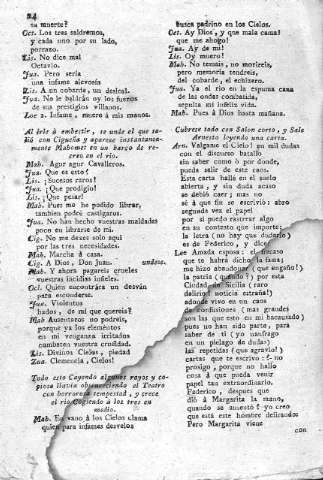 24
tu muerte?
Oct. Los tres saldremos,
y cada uno por su lado,
porrazo.
Lis. No dice mal
Octavio.
Jua. Pero sería
una infame alevosía
Lis. A un cobarde, un desleal.
Jua. No le baldrán ya los fueros
de sus prestigios villanos.
Los 2. Infame, muere á mis manos.
Al irle á embestir, se unde el que salió
con Cigueña y aparece instantaneamente
Mahomet en un barco de
en el rio.
Mah. Agur agur Cavalleros.
Jua. Que es esto?
Lis. ¡Sucesos raros!
Jua. ¡Que prodigio!
Lis. ¡Que pesar!
Mah. Pues me he podido librar,
tambien podré castigaros.
Jua. No han hecho vuestras maldades
poco en librarse de mi.
Cig. No me dexes solo aqui
por las tres necesidades.
Mah. Marcha á casa.
Cig. A Dios, Don Juan. undese.
Mah. Y ahora pagareis crueles
vuestras iniciales infieles.
Oct. Quien encontrára un desván
para esconderse.
Jua. Violentos
hados, de mi que quereis?
Mah Ausentaros no podreis,
porque ya los elementos
en mi venganza irritados
combaten vuestra crueldad.
Lis. Divinos Cielos, piedad
Jua. Clemencia, Cielos!
Todo esto Cayendo algunos rayos y copiosa
lluvia obscureciendo el Teatro
con horrorosa tempestad, y crece
el rio Cogiendo á los tres en
medio.
Mah. En vano á los Cielos clama
quien para infames desvelos
busca padrino en los Cielos.
Oct. Ay Dios, y que mala cama!
que me ahogo!
Jua. Ay de mi!
Lis. Oy muero!
Mah. No temais, no morireis,
pero memoria tendreis,
del cobarde, el echizero.
Jua. Ya el rio en la espuma cana
de las ondas combatida,
sepulta mi infeliz vida.
Mah. Pues á Dios hasta mañana.
Cubrese todo con Salon corto, y Sale
Arnesto leyendo una carta.
Arn. Valgame el Cielo! en mil dudas
con el discurso batallo
sin saber como ó por donde,
pueda salir de este caos.
Esta carta hallé en el suelo
abierta, y sin duda acaso
se debió caer; mas no
sé á que fin se escrivió; abro
segunda vez el papel
por si puedo rastrear algo
en su contexto que importe;
la letra (no hay que dudarlo)
es de Federico, y dice
Lee Amada esposa: el fracaso
que te habrá dicho la fama;
me hizo abandonar (que engaño!)
la patria (querido?) por esta
Ciudad de Sicilia (raro
delirio! noticia estraña!)
adonde vivo en un caos
de confusiones (mas grandes
son las que esto en mi ha causado)
pues no han sido parte, para
saber de tí (yo naufrago
en un pielago de dudas)
las repetidas (que agravio!)
cartas que te escrivo: &c no
prosigo, porque no hallo
cosa á que pueda venir
papel tan extraordinario.
Federico, despues que
dió á Margarita la mano,
quando se ausentó? yo creo
que está este hombre delirando
Pero Margarita viene
con